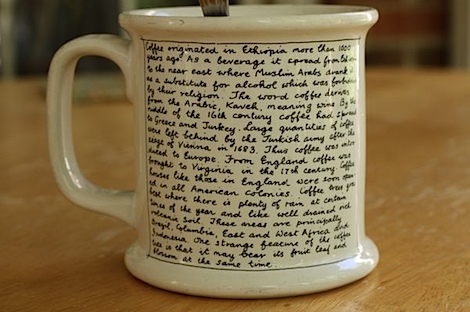 Coffee originated in Ethiopia more than 1000
years ago. As a beverage it spread from
to the near east where Muslim Arabs drank it
as a substitute for alcohol which was forbidden
by their religion. The word coffee derives
from the Arabic, Kaveh, meaning wine. By the
middle of the 16th century coffee had spread
to Greece and Turkey. Large quantities of coffee
were left behind by the Turkish army after the
siege of Vienna in 1683. Thus coffee was intro
duced to Europe. From England coffee was
brought to Virginia in the 17th century. Coffee
houses like those in England were soon open
ed in all American Colonies. Coffee trees grow
best where there is plenty of rain at certain
times of the year and like well drained rich
volcanic soil. These areas are principally
Brazil, Columbia, East and West Africa and
Indonesia. The strange feature of the coffee
tree is that it may bear its fruit leaf and
blossom at the same time.